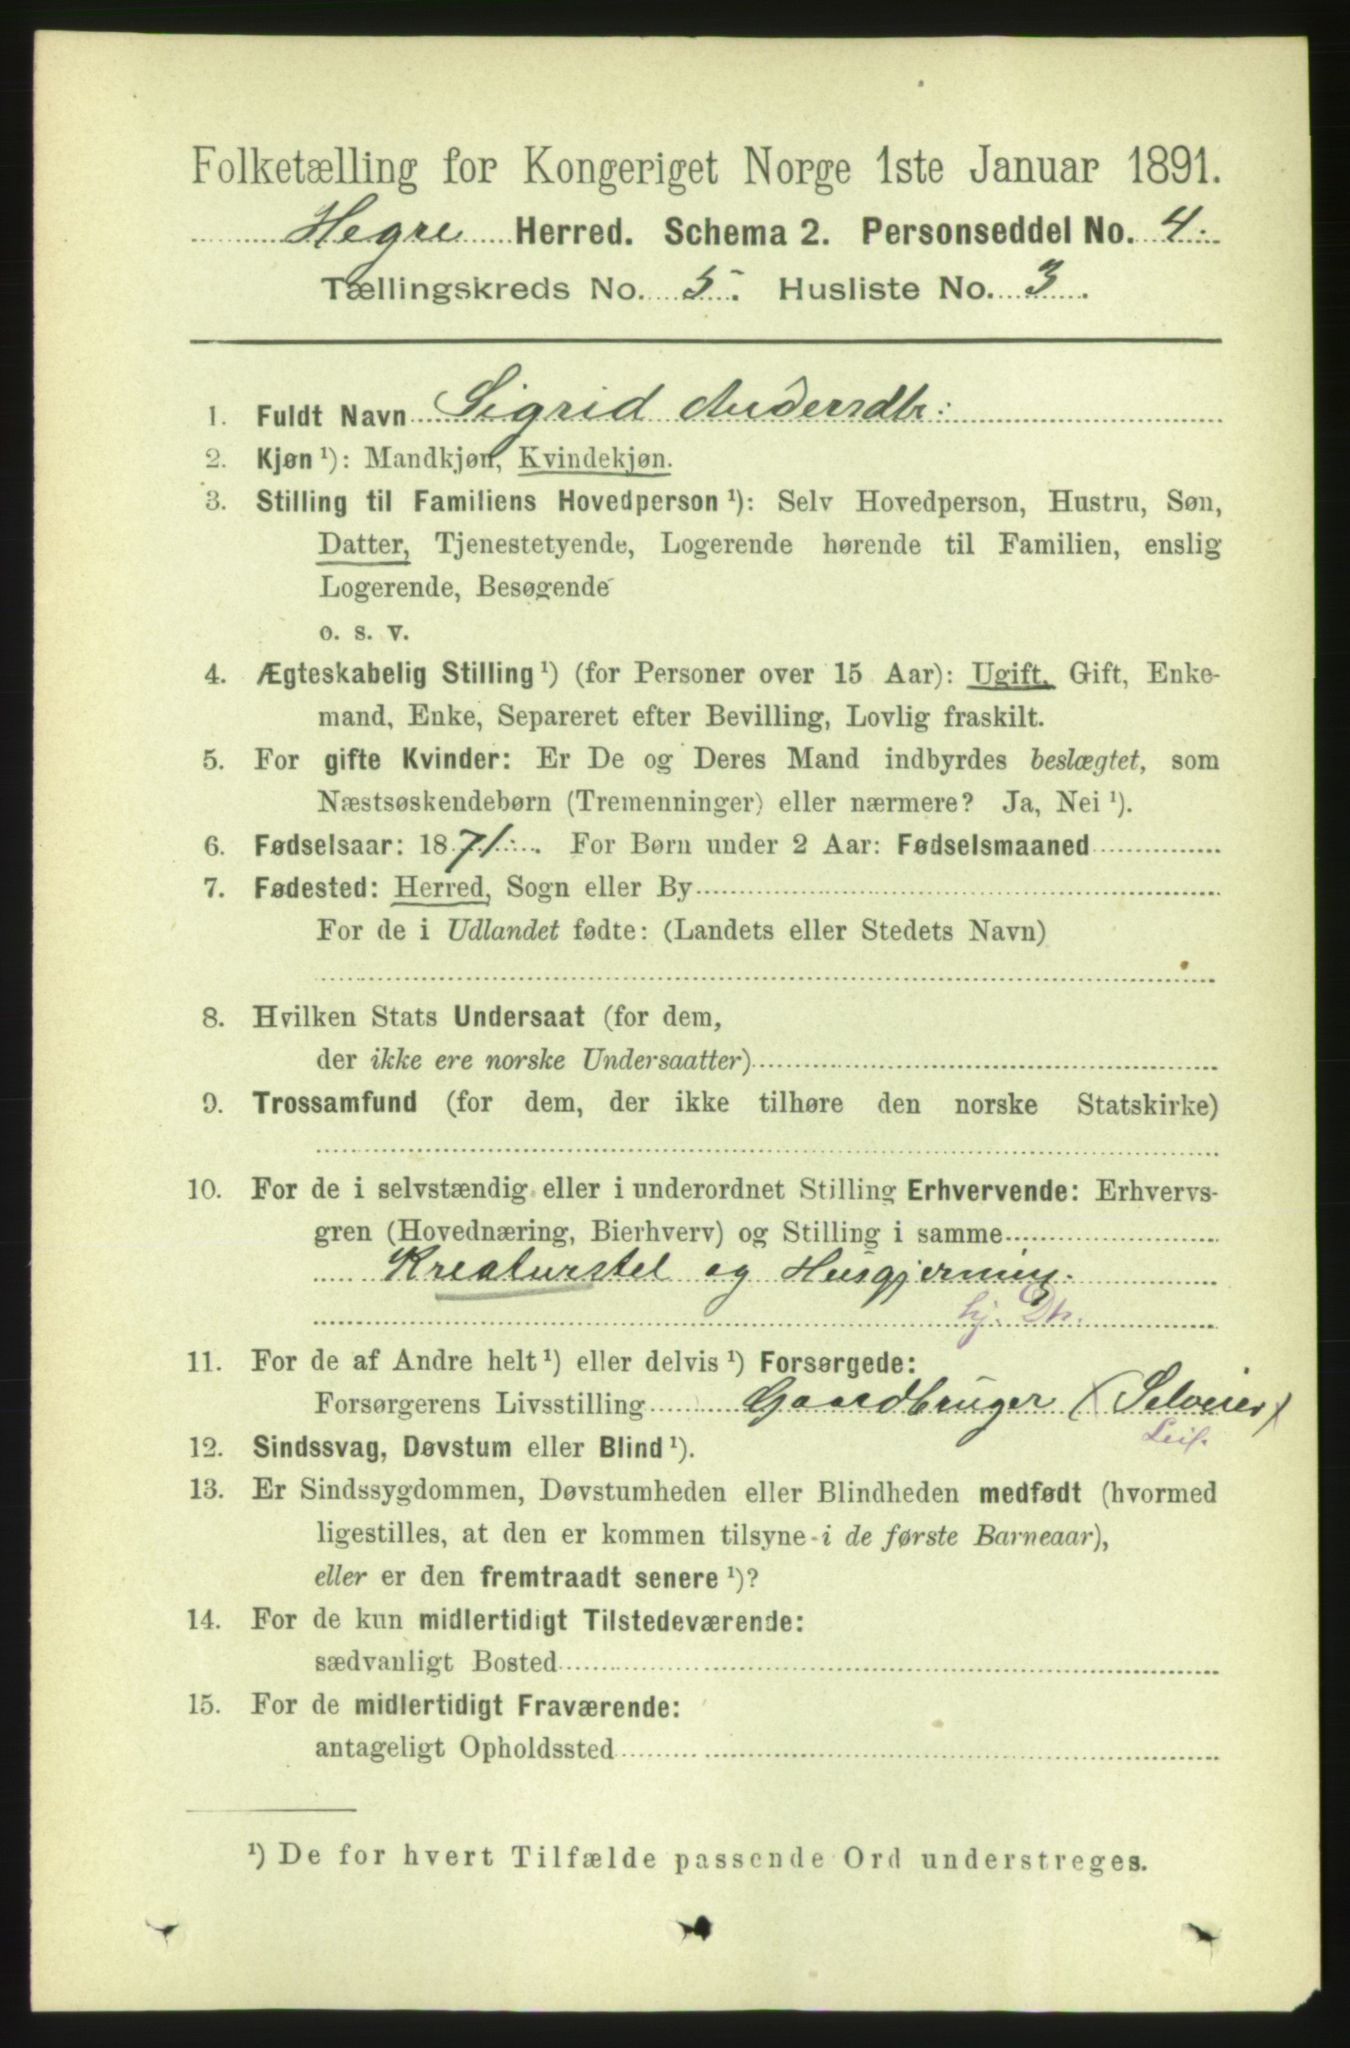 Folketælling for Kongeriget Norge 1ste Januar 1891.
Hegre Herred. Schema 2. Personseddel No. 4.
Tællingskreds No. 5. Husliste No. 3.
1. Fuldt Navn Sigrid Andersdtr:
2. Kjøn ¹): Mandkjøn, Kvindekjøn.
3. Stilling til Familiens Hovedperson ¹): Selv Hovedperson, Hustru, Søn,
Datter, Tjenestetyende, Logerende hørende til Familien, enslig
Logerende, Besøgende
o. s. v.
4. Ægteskabelig Stilling ¹) (for Personer over 15 Aar): Ugift, Gift, Enke-
mand, Enke, Separeret efter Bevilling, Lovlig fraskilt.
5. For gifte Kvinder: Er De og Deres Mand indbyrdes beslægtet, som
Næstsøskendebørn (Tremenninger) eller nærmere? Ja, Nei ¹).
6. Fødselsaar: 1871. For Børn under 2 Aar: Fødselsmaaned
7. Fødested: Herred, Sogn eller By
For de i Udlandet fødte: (Landets eller Stedets Navn)
8. Hvilken Stats Undersaat (for dem,
der ikke ere norske Undersaatter)
9. Trossamfund (for dem, der ikke tilhøre den norske Statskirke)
10. For de i selvstændig eller i underordnet Stilling Erhvervende: Erhvervs-
gren (Hovednæring, Bierhverv) og Stilling i samme
Kreaturstel og Husgjerning.
hj. Dtr.
11. For de af Andre helt ¹) eller delvis ¹) Forsørgede:
Forsørgerens Livsstilling Gaardbruger (Selveier)
12. Sindssvag, Døvstum eller Blind ¹).
13. Er Sindssygdommen, Døvstumheden eller Blindheden medfødt (hvormed
ligestilles, at den er kommen tilsyne i de første Barneaar),
eller er den fremtraadt senere ¹)?
14. For de kun midlertidigt Tilstedeværende:
sædvanligt Bosted
15. For de midlertidigt Fraværende:
antageligt Opholdssted
¹) De for hvert Tilfælde passende Ord understreges.